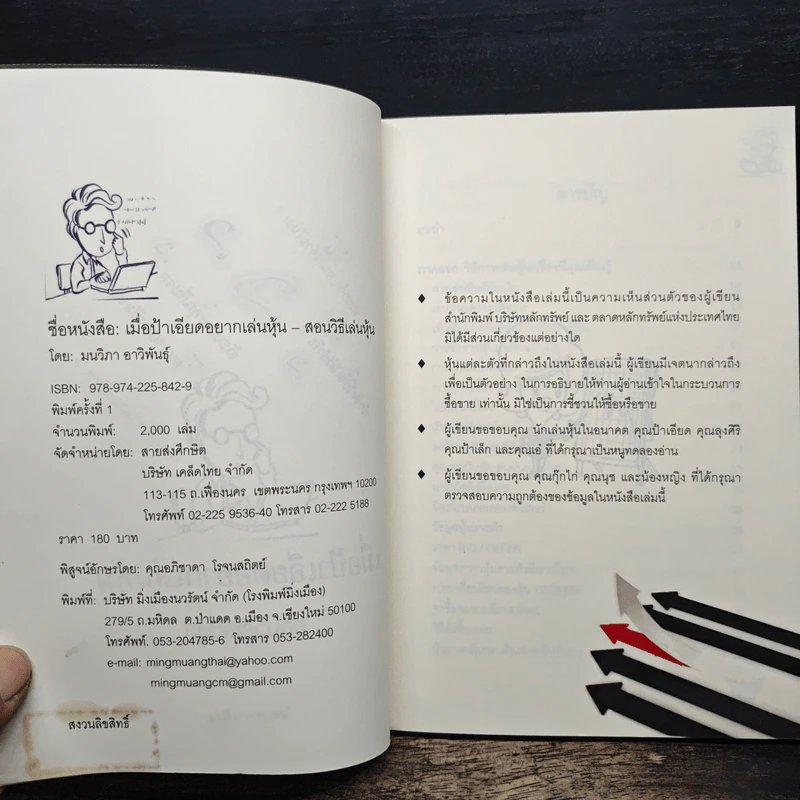 ชื่อหนังสือ: เมื่อป้าเอียดอยากเล่นหุ้น – สอนวิธีเล่นหุ้น
โดย: มนวิภา อาวิพันธุ์
ISBN: 978-974-225-842-9
พิมพ์ครั้งที่ 1
จำนวนพิมพ์: 2,000 เล่ม
จัดจำหน่ายโดย: สายส่งศึกษิต
บริษัท เคล็ดไทย จำกัด
113-115 ถ.เฟื่องนคร เขตพระนคร กรุงเทพฯ 10200
โทรศัพท์ 02-225 9536-40 โทรสาร 02-222 5188
ราคา 180 บาท
พิสูจน์อักษรโดย: คุณอภิชาดา โรจนสถิตย์
พิมพ์ที่: บริษัท มิ่งเมืองนวรัตน์ จำกัด (โรงพิมพ์มิ่งเมือง)
279/5 ถ.มหิดล ต.ป่าแดด อ.เมือง จ.เชียงใหม่ 50100
โทรศัพท์. 053-204785-6 โทรสาร 053-282400
e-mail: mingmuangthai@yahoo.com
mingmuangcm@gmail.com
สงวนลิขสิทธิ์
♦ ข้อความในหนังสือเล่มนี้เป็นความเห็นส่วนตัวของผู้เขียน
สำนักพิมพ์ บริษัทหลักทรัพย์ และ ตลาดหลักทรัพย์แห่งประเทศไทย
มิได้มีส่วนเกี่ยวข้องแต่อย่างใด
♦ หุ้นแต่ละตัวที่กล่าวถึงในหนังสือเล่มนี้ ผู้เขียนมีเจตนากล่าวถึง
เพื่อเป็นตัวอย่าง ในการอธิบายให้ท่านผู้อ่านเข้าใจในกระบวนการ
ซื้อขาย เท่านั้น มิใช่เป็นการชี้ชวนให้ซื้อหรือขาย
♦ ผู้เขียนขอขอบคุณ นักเล่นหุ้นในอนาคต คุณป้าเอียด คุณลุงศิริ
คุณป้าเล็ก และคุณเอ๋ ที่ได้กรุณาเป็นหนูทดลองอ่าน
♦ ผู้เขียนขอขอบคุณ คุณกุ๊กไก่ คุณนุช และน้องหญิง ที่ได้กรุณา
ตรวจสอบความถูกต้องของข้อมูลในหนังสือเล่มนี้